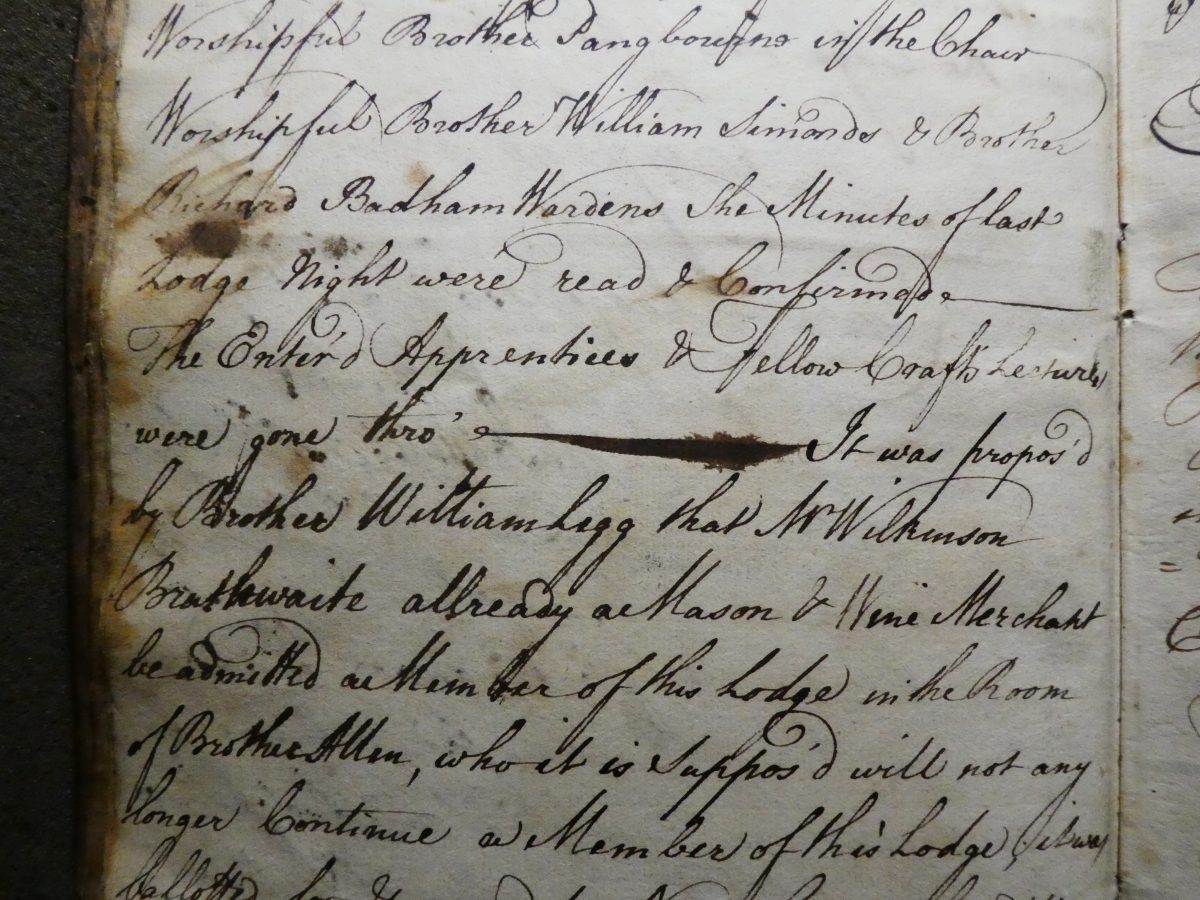 Worshipful Brother Pangbourne in the Chair
Worshipful Brother William Simonds & Brother
Richard Badham Wardens The Minutes of last
Lodge Night were read & Confirmed
The Enter'd Apprentices & Fellow Crafts Lectures
were gone thro' It was propos'd
by Brother William Legg that Mr Wilkinson
Brathwaite allready a Mason & Wine Merchant
be admitted a Member of this Lodge in the Room
of Brother Allen, who it is Suppos'd will not any
longer Continue a Member of this Lodge, it was
ballotted for &